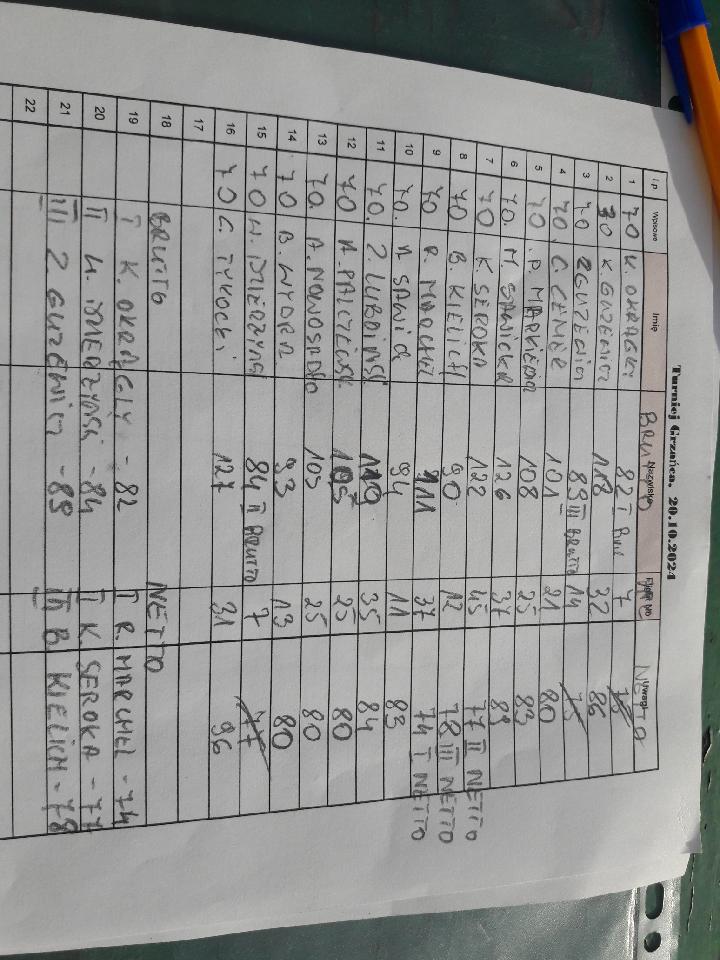 Turniej Grzańca. 20.10.2024
Lp. Wpisowe Imię Nazwisko BRUTTO Uwagi NETTO
1 70 K. OKRĄGŁY 82 I 7
2 70 K GUZEWICZ 118 32 86
3 70 Z GUZEWICZ 89 III BRUTTO 14 75
4 70. 101 21 80
5 70 P. 108 25 83
6 70. M. 126 37 89
7 70 K SEROKA 122 45 77 II NETTO
8 70 B. KIELICH 90 12 78 III NETTO
9 70 R. MARCHEL 111 37 74 I NETTO
10 70. 94 11 83
11 70. Z. 35 84
12 70 A. 105 25 80
13 70. A. 105 25 80
14 70 B. 93 13 80
15 70 84 II BRUTTO 7 77
16 70 C. TYKOCKI 127 31 96
17
18 BRUTTO NETTO
19 I K. OKRĄGŁY - 82 I R. MARCHEL - 74
20 II - 84 II K SEROKA - 77
21 III Z GUZEWICZ - 89 III B KIELICH - 78
22